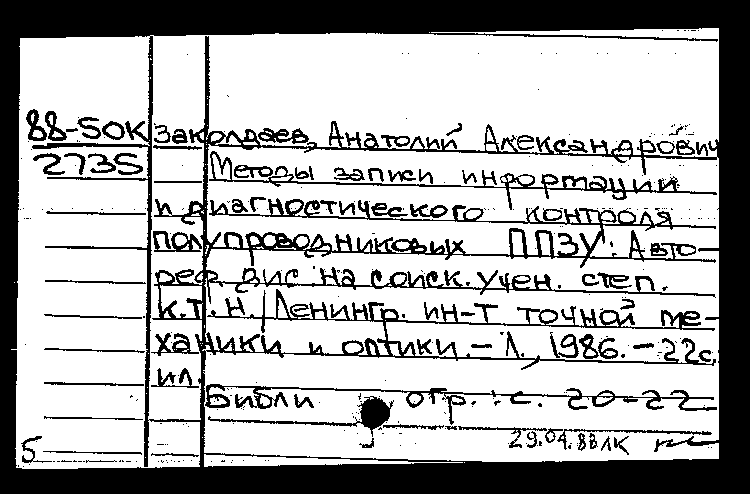 88-50К Заколдаев, Анатолий Александрович
2735 Методы записи информации
и диагностического контроля
полупроводниковых ППЗУ: Авто-
реф. дис на соиск. учен. степ.
к.т.н. / Ленингр. ин-т точной ме-
ханики и оптики. - Л., 1986. - 22с.
ил.
Библиогр.: с. 20-22.
29.04.88 ЛК
5